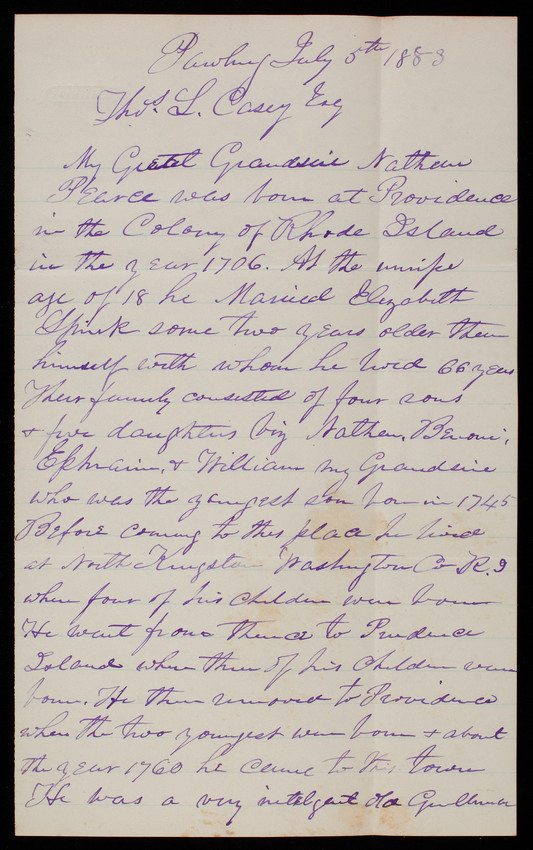 Pawling July 5th 1883
Thos. L. Casey Esq
My Great Grandsire Nathan
Pearce was born at Providence
in the Colony of Rhode Island
in the year 1706. At the unripe
age of 18 he Married Elizabeth
Spink some two years older then
himself with whom he lived 66 years
Their family consisted of four sons
& five daughters viz Nathan, Benoni,
Ephraim, & William my Grandsire
who was the youngest son born in 1745
Before coming to this place he lived
at North Kingston Washington Co R.I
where four of his children were born
He went from thence to Prudence
Island where three of his children were
born. He then removed to Providence
where the two youngest were born & about
the year 1760 he came to this town
He was a very inteligent old Gentleman